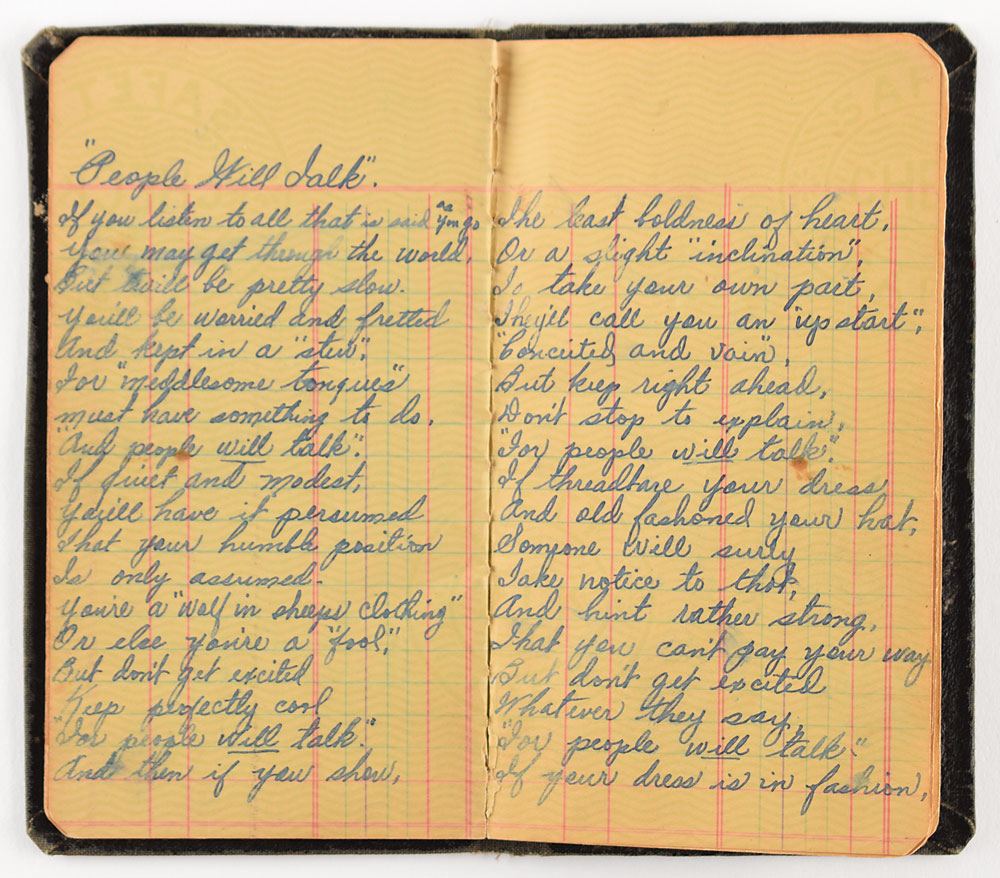 "People Will Talk".
If you listen to all that is said as you go
You may get through the world,
But twill be pretty slow.
You'll be worried and fretted
And kept in a "stew",
For "meddlesome tongues"
must have something to do.
"And people will talk".
If quiet and modest,
You'll have it persumed
That your humble position
Is only assumed-
You're a "wolf in sheeps clothing"
Or else you're a "fool",
But don't get excited
Keep perfectly cool
"For people will talk".
And then if you show,
The least boldness of heart,
Or a slight "inclination",
To take your own part,
They'll call you an "upstart",
"Conceited, and vain",
But keep right ahead,
Don't stop to explain,
"For people will talk".
If threadbare your dress
And old fashioned your hat,
Someone will surly
Take notice to that,
And hint rather strong,
That you can't pay your way
But don't get excited
Whatever they say,
"For people will talk"
If your dress is in fashion,